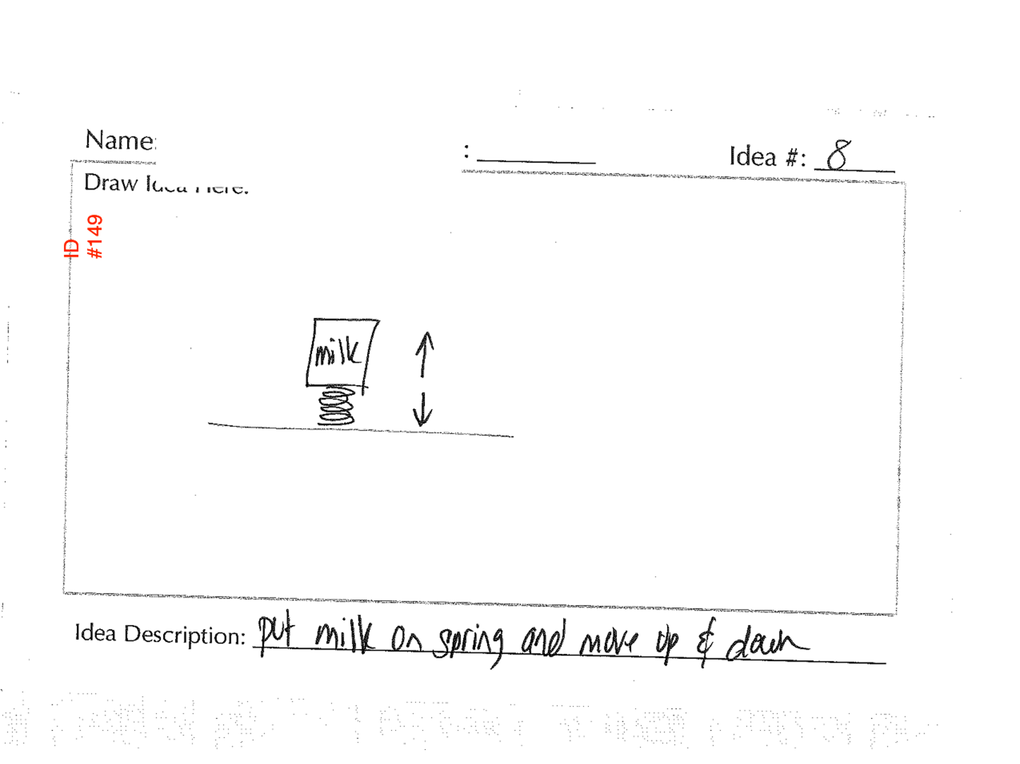 Name:
: Idea #: 8
Draw Idea Here:
ID
#149
milk
Idea Description: put milk on spring and move up & down